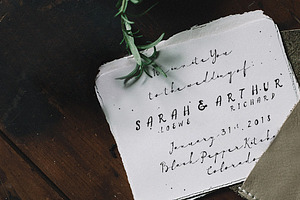 Invite You
to the wedding of
SARAH & ARTHUR
LOEWE RICHARD
January 31st, 2018
Black Pepper Kitchen
Colorado